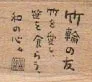 竹輪の友
竹を愛し
麺を食らう
和の心